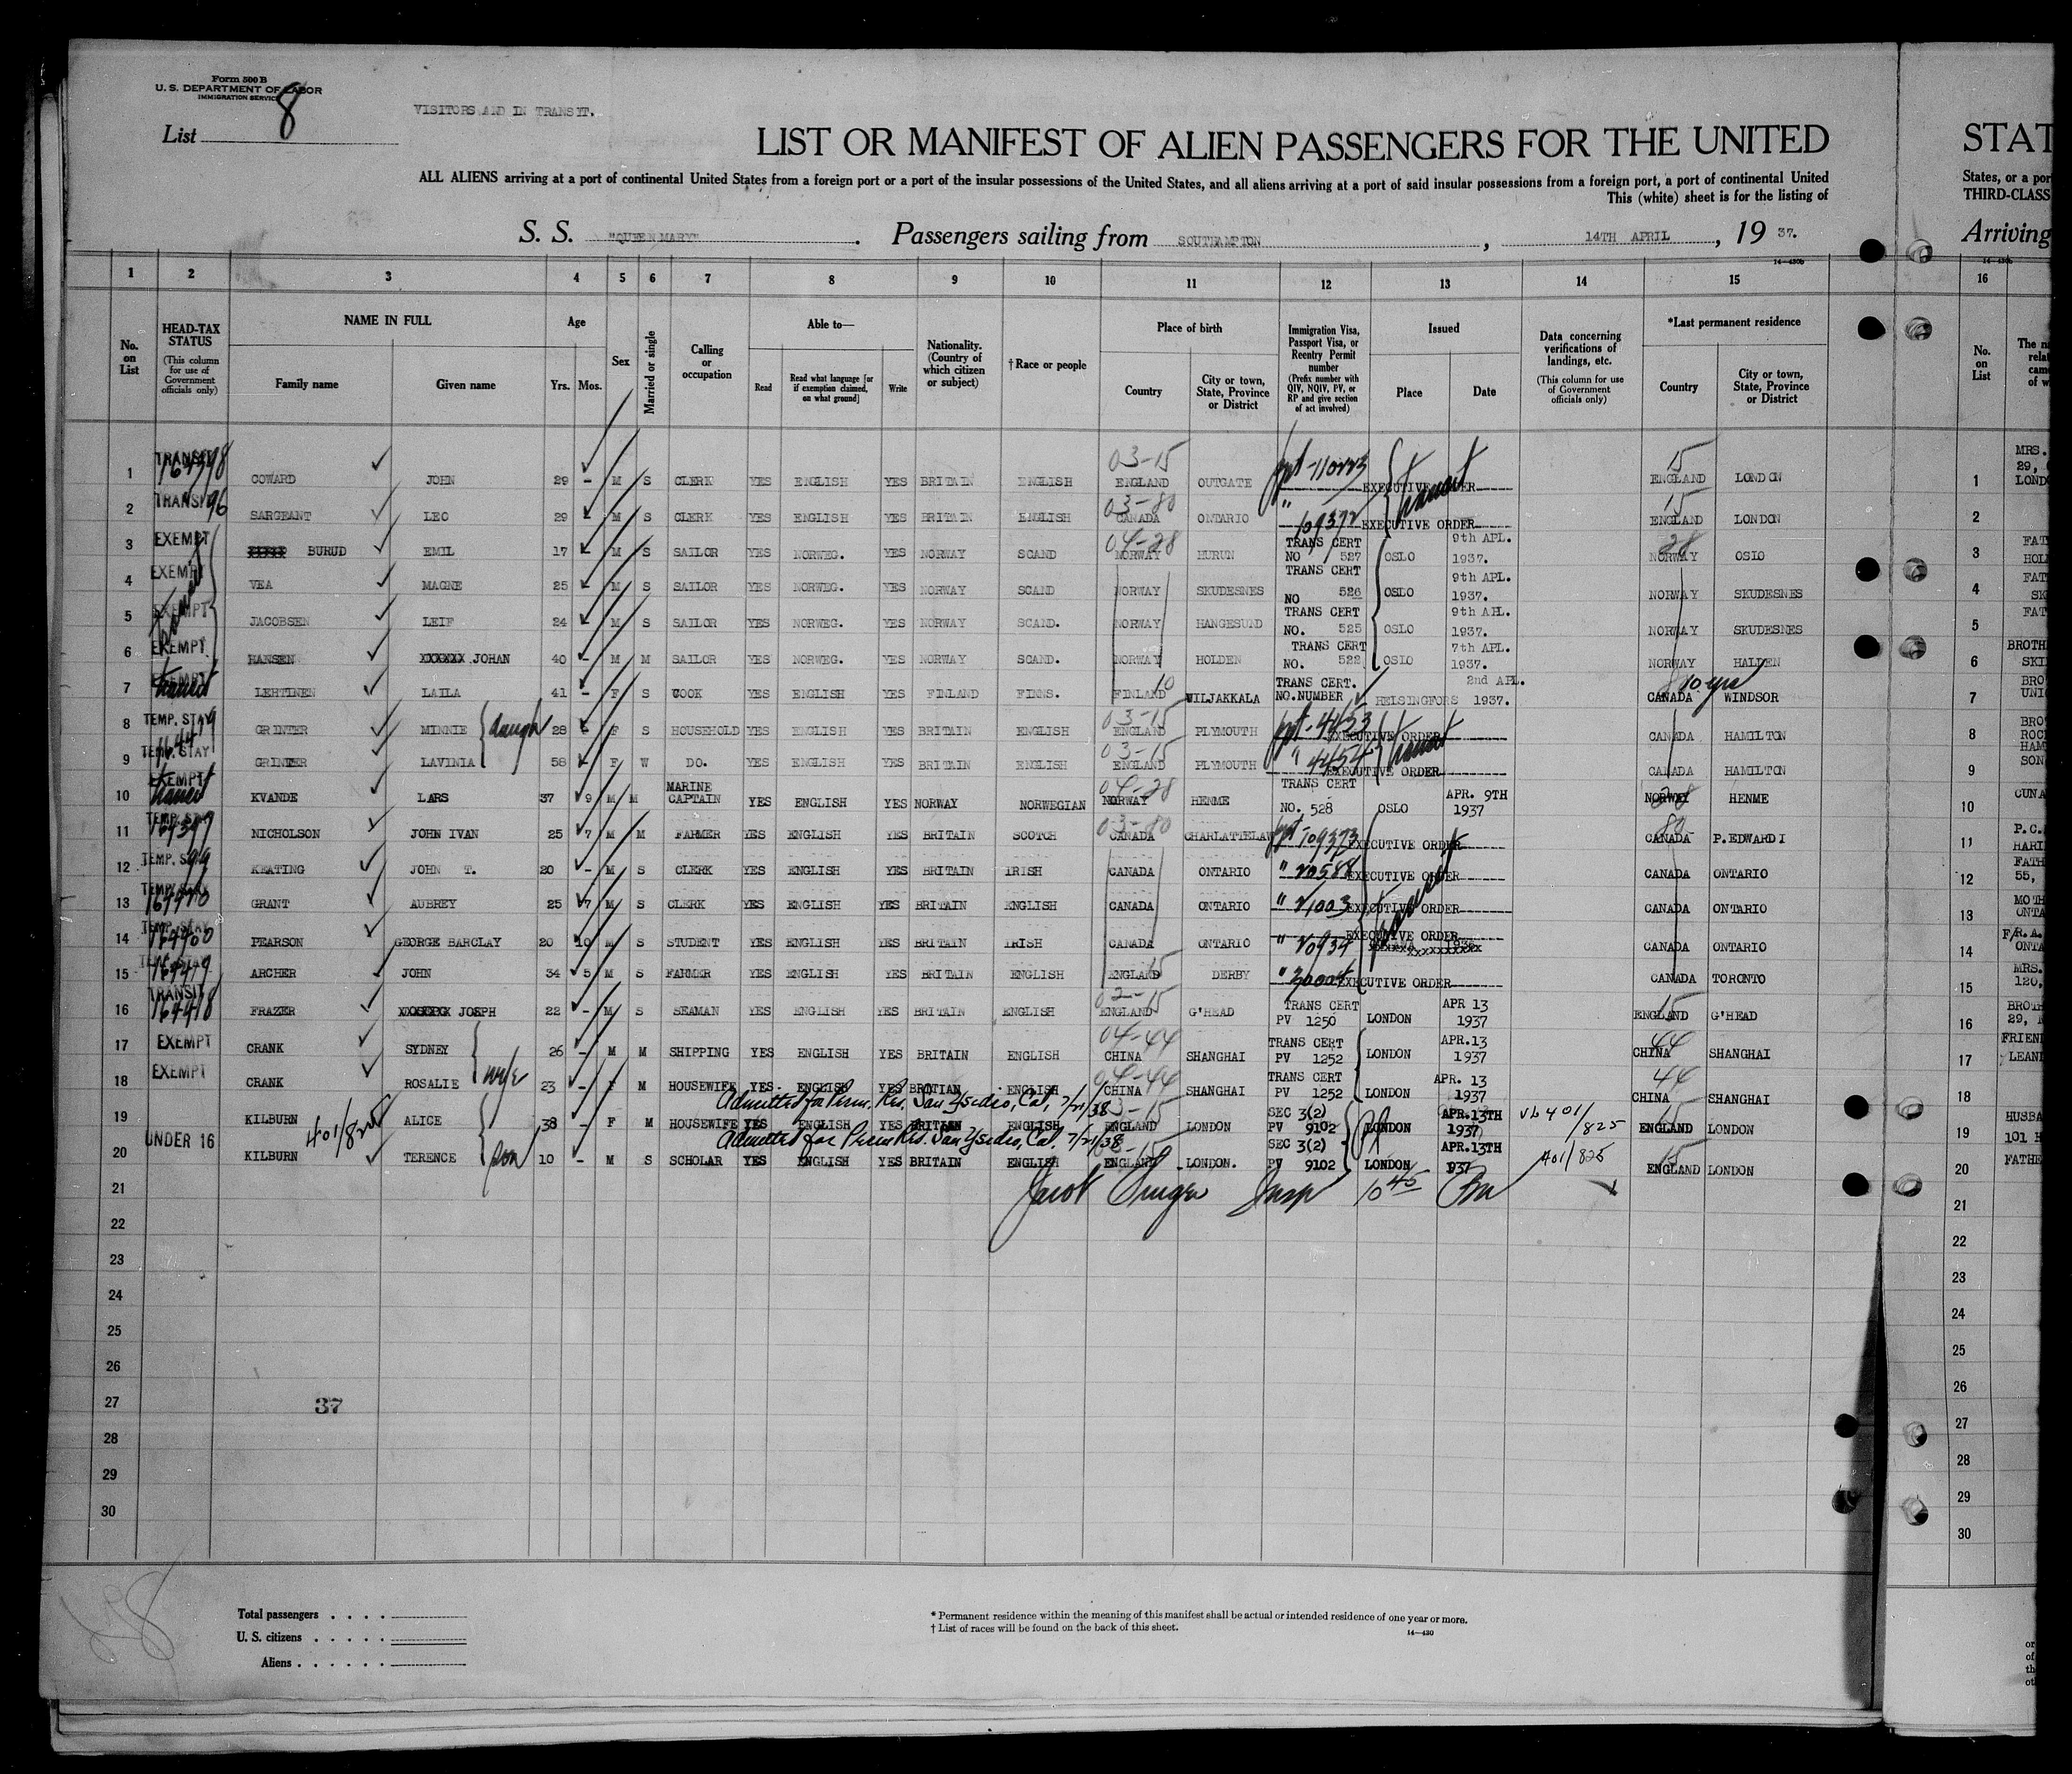 Form 500 B
U. S. DEPARTMENT OF LABOR
IMMIGRATION SERVICE
List 8
VISITORS AND IN TRANSIT.
LIST OR MANIFEST OF ALIEN PASSENGERS FOR THE UNITED
STAT
ALL ALIENS arriving at a port of continental United States from a foreign port or a port of the insular possessions of the United States, and all aliens arriving at a port of said insular possessions from a foreign port, a port of continental United
States, or a por
This (white) sheet is for the listing of
THIRD-CLASS
S. S. "QUEEN MARY". Passengers sailing from SOUTHAMPTON, 14TH APRIL, 19 37.
Arriving
14—430b
1 2 3 4 5 6 7 8 9 10 11 12 13 14 15 16
No. on List
HEAD-TAX STATUS (This column for use of Government officials only)
NAME IN FULL
Family name
Given name
Age
Yrs. Mos.
Sex
Married or single
Calling or occupation
Able to—
Read
Read what language [or if exemption claimed, on what ground]
Write
Nationality. (Country of which citizen or subject)
† Race or people
Place of birth
Country
City or town, State, Province or District
Immigration Visa, Passport Visa, or Reentry Permit number (Prefix number with QIV, NQIV, PV, or RP and give section of act involved)
Issued
Place
Date
Data concerning verifications of landings, etc. (This column for use of Government officials only)
*Last permanent residence
Country
City or town, State, Province or District
No. on List
1 TRANSIT COWARD JOHN 29 - M S CLERK YES ENGLISH YES BRITAIN ENGLISH 03-15 ENGLAND OUTGATE EXECUTIVE ORDER 15 ENGLAND LONDON 1 MRS. 29,
2 TRANSIT 96 SARGEANT LEO 29 - M S CLERK YES ENGLISH YES BRITAIN ENGLISH 03-80 CANADA ONTARIO " 109372 EXECUTIVE ORDER transit 15 ENGLAND LONDON 2
3 EXEMPT BURUD EMIL 17 - M S SAILOR YES NORWEG. YES NORWAY SCAND 04-28 NORWAY HURUN TRANS CERT NO 527 OSLO 9th APL. 1937. 28 NORWAY OSLO 3 FAT
4 EXEMPT VEA MAGNE 25 - M S SAILOR YES NORWEG. YES NORWAY SCAND NORWAY SKUDESNES TRANS CERT NO 526 OSLO 9th APL. 1937. NORWAY SKUDESNES 4 FAT
5 EXEMPT JACOBSEN LEIF 24 - M S SAILOR YES NORWEG. YES NORWAY SCAND. NORWAY HANGESUND TRANS CERT NO. 525 OSLO 9th APL. 1937. NORWAY SKUDESNES 5 FAT
6 EXEMPT HANSEN XXXXXX JOHAN 40 - M M SAILOR YES NORWEG. YES NORWAY SCAND. NORWAY HOLDEN TRANS CERT NO. 522 OSLO 7th APL. 1937. NORWAY HALDEN 6 BROTH SKI
7 EXEMPT transit LEHTINEN LAILA 41 - F S COOK YES ENGLISH YES FINLAND FINNS. FINLAND 10 WILJAKKALA TRANS CERT. NO.NUMBER HELSINGFORS 2nd APL. 1937. CANADA 10 yrs WINDSOR 7 BRO UNI
8 TEMP. STAY GRINTER MINNIE daugh 28 - F S HOUSEHOLD YES ENGLISH YES BRITAIN ENGLISH 03-15 ENGLAND PLYMOUTH ppt-4453 EXECUTIVE ORDER CANADA HAMILTON 8 BRO ROC HAM
9 TEMP. STAY GRINTER LAVINIA 58 - F W DO. YES ENGLISH YES BRITAIN ENGLISH 03-15 ENGLAND PLYMOUTH " 4454 EXECUTIVE ORDER transit CANADA HAMILTON 9 SON
10 EXEMPT transit KVANDE LARS 37 9 M M MARINE CAPTAIN YES ENGLISH YES NORWAY NORWEGIAN 04-28 NORWAY HENME TRANS CERT NO. 528 OSLO APR. 9TH 1937 28 NORWAY HENME 10 CUNA
11 TEMP. STAY 164397 NICHOLSON JOHN IVAN 25 7 M M FARMER YES ENGLISH YES BRITAIN SCOTCH 03-80 CANADA CHARLATTELAW ppt-109373 EXECUTIVE ORDER 80 CANADA P.EDWARD I 11 P.C. HARI
12 TEMP. STAY 99 KEATING JOHN T. 20 - M S CLERK YES ENGLISH YES BRITAIN IRISH CANADA ONTARIO " EXECUTIVE ORDER CANADA ONTARIO 12 FATH 55,
13 TEMP. STAY GRANT AUBREY 25 7 M S CLERK YES ENGLISH YES BRITAIN ENGLISH CANADA ONTARIO " EXECUTIVE ORDER transit CANADA ONTARIO 13 MOTH ONTA
14 TEMP. STAY 164400 PEARSON GEORGE BARCLAY 20 10 M S STUDENT YES ENGLISH YES BRITAIN IRISH CANADA ONTARIO " EXECUTIVE ORDER CANADA ONTARIO 14 F/R.A. ONTA
15 TEMP. STAY ARCHER JOHN 34 5 M S FARMER YES ENGLISH YES BRITAIN ENGLISH ENGLAND 15 DERBY " EXECUTIVE ORDER CANADA TORONTO 15 MRS. 120,
16 TRANSIT 164418 FRAZER JOSPH 22 - M S SEAMAN YES ENGLISH YES BRITAIN ENGLISH 02-15 ENGLAND G'HEAD TRANS CERT PV 1250 LONDON APR 13 1937 15 ENGLAND G'HEAD 16 BROTH 29,
17 EXEMPT CRANK SYDNEY 26 - M M SHIPPING YES ENGLISH YES BRITAIN ENGLISH 04-44 CHINA SHANGHAI TRANS CERT PV 1252 LONDON APR.13 1937 44 CHINA SHANGHAI 17 FRIEN LEAN
18 EXEMPT CRANK ROSALIE wife 23 - F M HOUSEWIFE YES ENGLISH YES BRITIAN ENGLISH 04-44 CHINA SHANGHAI TRANS CERT PV 1252 LONDON APR. 13 1937 44 CHINA SHANGHAI 18
Admitted for Perm. Res. San Ysidro, Cal, 7/21/38
19 KILBURN 401/825 ALICE 38 - F M HOUSEWIFE YES ENGLISH YES BRITIAN ENGLISH 03-15 ENGLAND LONDON SEC 3(2) PV 9102 LONDON APR.13TH 1937 VL 401/825 15 ENGLAND LONDON 19 HUSBA 101 H
Admitted for Perm Res. San Ysidro, Cal. 7/21/38
20 UNDER 16 KILBURN TERENCE son 10 - M S SCHOLAR YES ENGLISH YES BRITAIN ENGLISH 03-15 ENGLAND LONDON. SEC 3(2) PV 9102 LONDON APR.13TH 1937 401/825 15 ENGLAND LONDON 20 FATHE
21 Jacob Insp 10 45 21
22 22
23 23
24 24
25 25
26 26
27 37 27
28 28
29 29
30 30
Total passengers . . . .
U. S. citizens . . . . .
Aliens . . . . . .
* Permanent residence within the meaning of this manifest shall be actual or intended residence of one year or more.
† List of races will be found on the back of this sheet.
14—430